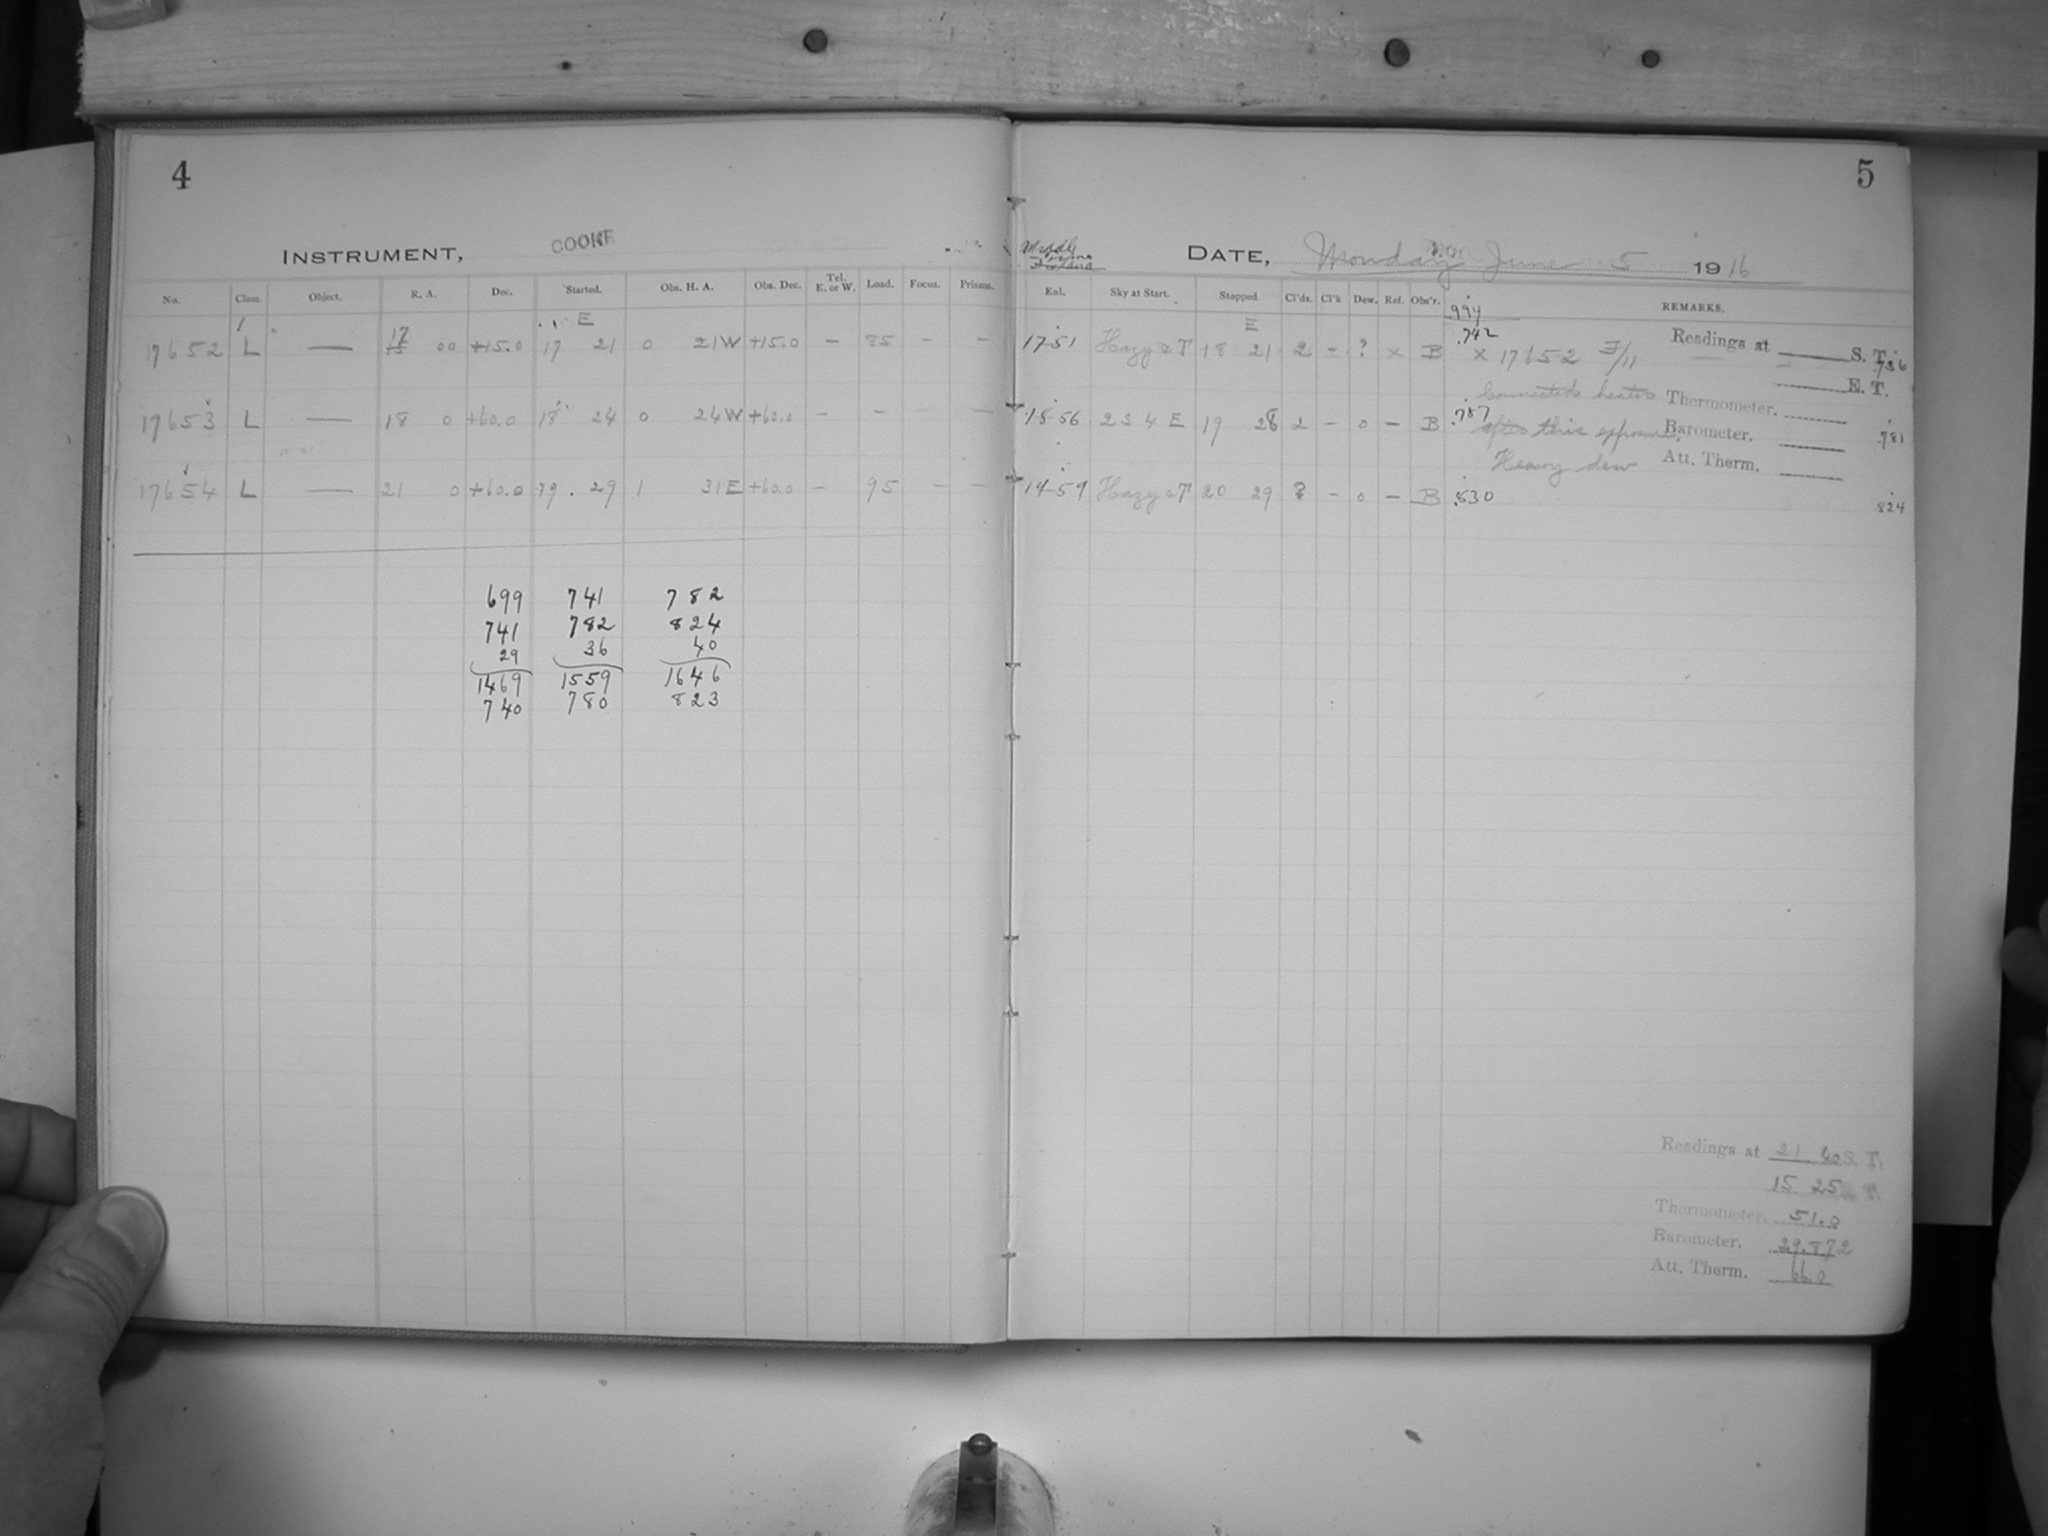 4
INSTRUMENT, COOKE
No. Class. Object. R. A. Dec. Started. Obs. H. A. Obs. Dec. Tel. E. or W. Load. Focus. Prisms.
E
17652 L — 17 15 00 +15.0 17 21 0 21W +15.0 – 85 – –
17653 L — 18 0 +60.0 18 24 0 24W +60.0 – – – –
17654 L — 21 0 +60.0 19 29 1 31E +60.0 – 95 – –
699 741 782
741 782 824
29 36 40
1469 1559 1646
740 780 823
5
Middle
DATE, Monday June 5 1916
Exl. Sky at Start. Stopped Cl'ds. Cl'k Dew. Ref. Obs'r. REMARKS.
.994
E
17 51 Hazy & T 18 21 2 – ? x B .742 x 17652 F/11 Readings at S. T. .736
E. T.
Connected heaters Thermometer.
15 56 2 3 4 E 19 28 2 – 0 – B .787 after this exposure. Barometer. .781
Heavy dew Att. Therm.
14 59 Hazy & T 20 29 ? – 0 – B .830 824
Readings at 21 40 S. T.
15 25
Thermometer. 51.0
Barometer. 29.872
Att. Therm. 66.0